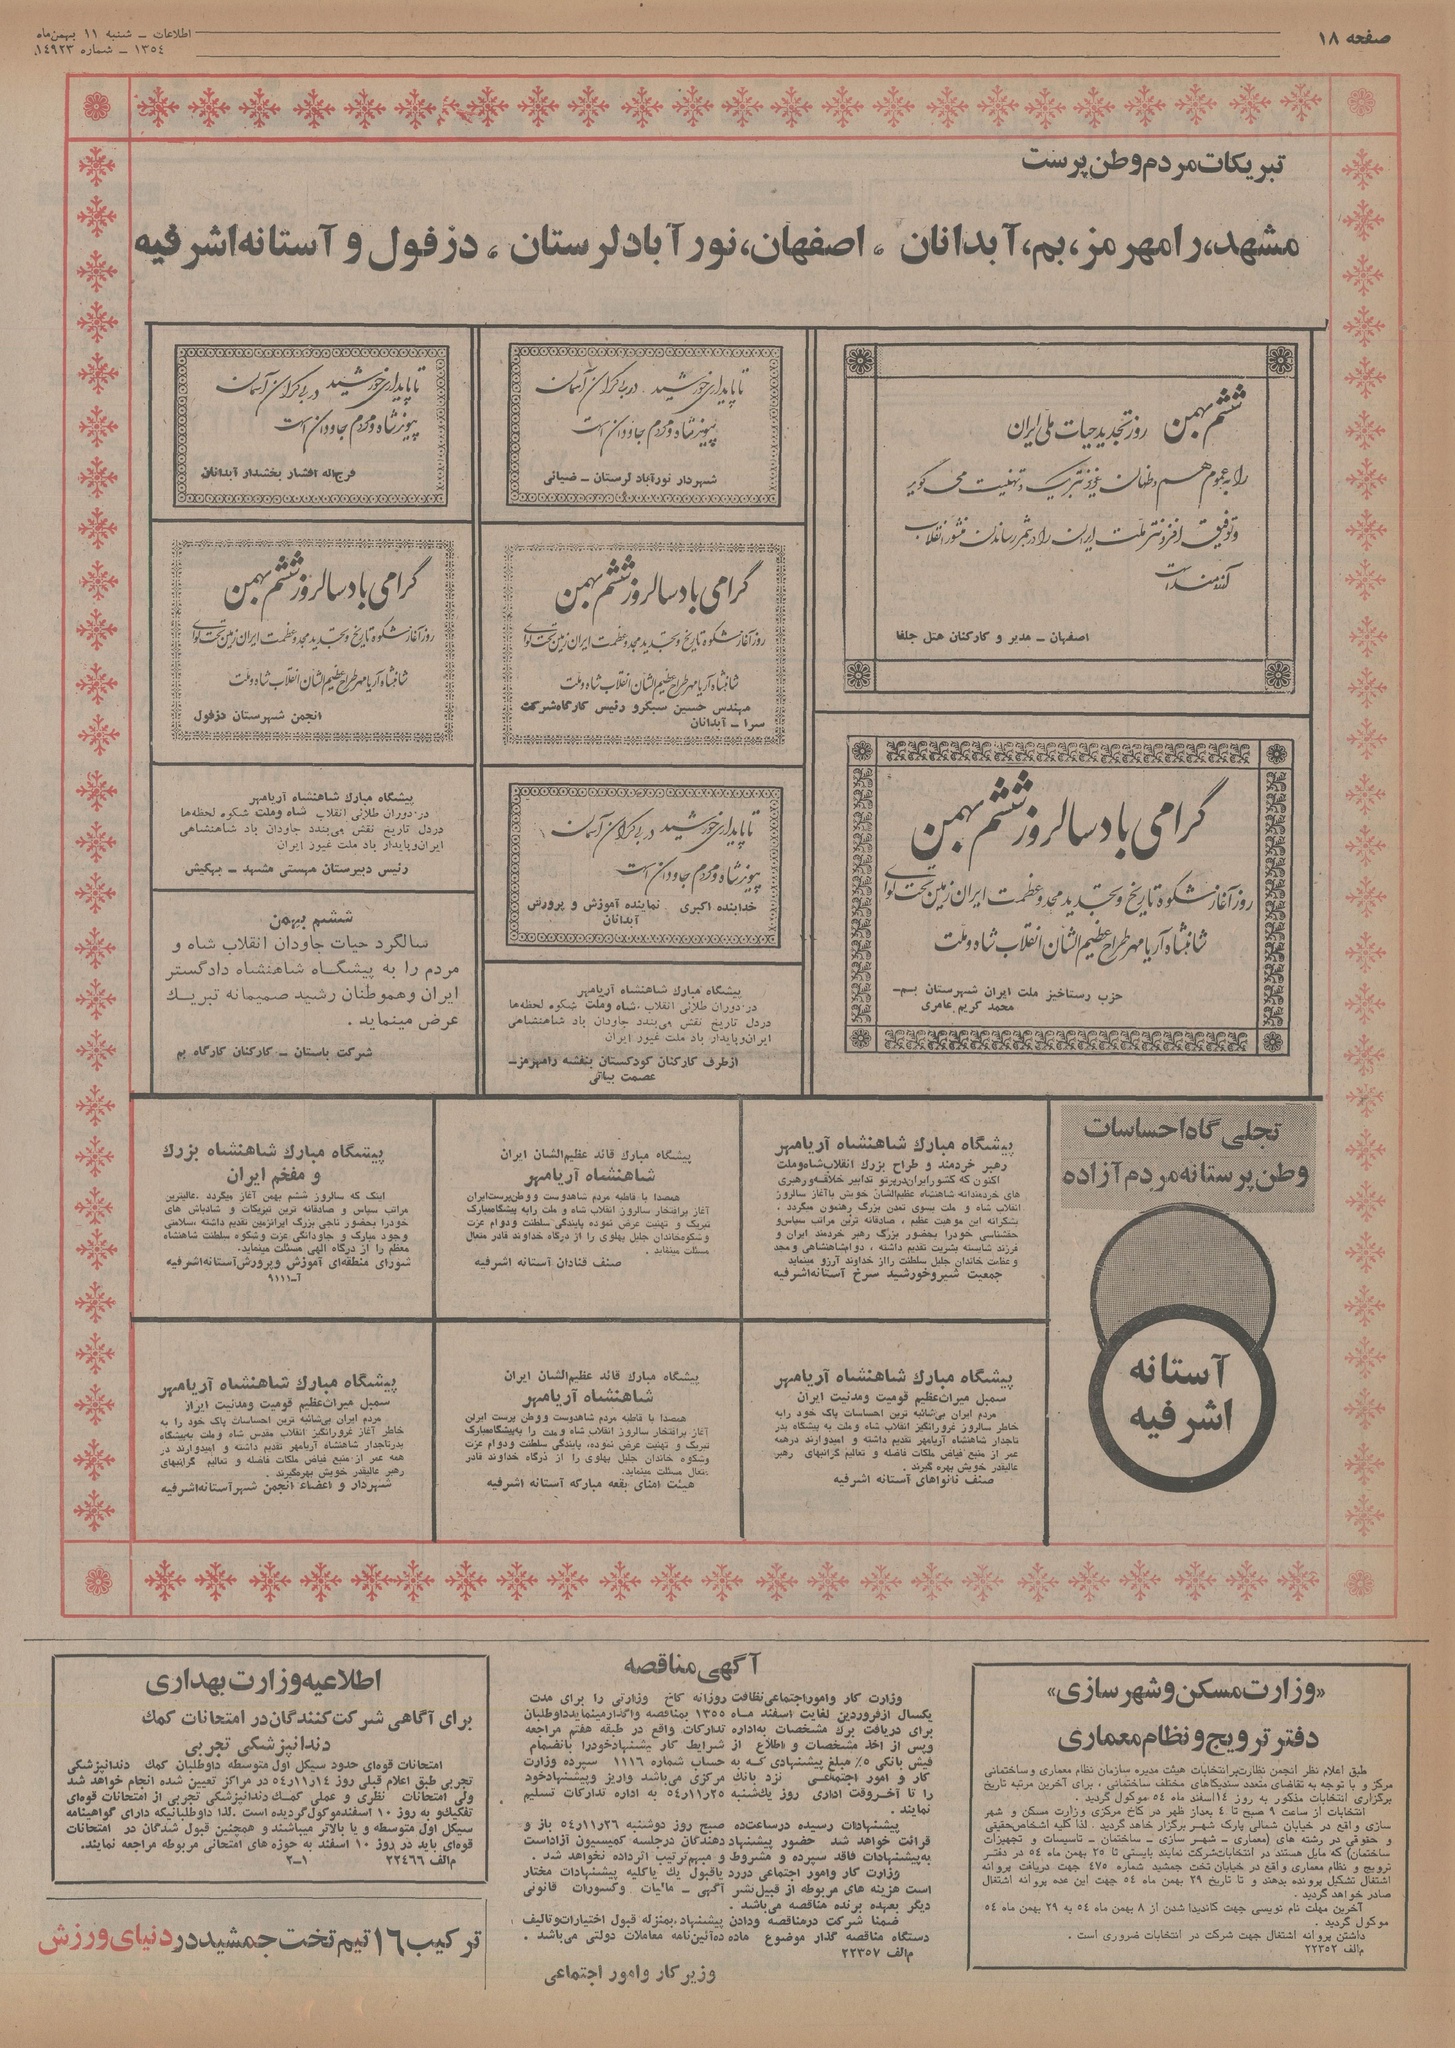 صفحه ۱۸
اطلاعات ـ شنبه ۱۱ بهمن‌ماه
۱۳۵٤ ـ شماره ۱٤۹۲۳
تبریکات مردم وطن پرست
مشهد، رامهرمز، بم، آبدانان ، اصفهان، نورآباد لرستان ، دزفول و آستانه اشرفیه
ششم بهمن روز تجدید حیات ملی ایران
را به عموم هم وطنان عزیز تبریک و تهنیت می گوید
و توفیق افزونتر ملت ایران را در بثمر رساندن منشور انقلاب
آرزومند است
اصفهان ـ مدیر و کارکنان هتل جلفا
گرامی باد سالروز ششم بهمن
روز آغاز شکوه تاریخ و تجدید مجد و عظمت ایران زمین تحت لوای
شاهنشاه آریامهر طراح عظیم الشان انقلاب شاه و ملت
حزب رستاخیز ملت ایران شهرستان بـم ـ
محمد کریم عامری
تا پایداری خورشید در بی کران آسمان
پیوند شاه و مردم جاودان است
شهردار نورآباد لرستان ـ ضیائی
گرامی باد سالروز ششم بهمن
روز آغاز شکوه تاریخ و تجدید مجد و عظمت ایران زمین تحت لوای
شاهنشاه آریامهر طراح عظیم الشان انقلاب شاه و ملت
مهندس حسین سبکرو رئیس کارگاه شرکت
سرا ـ آبدانان
تا پایداری خورشید در بی کران آسمان
پیوند شاه و مردم جاودان است
خدابنده اکبری نماینده آموزش و پرورش
آبدانان
پیشگاه مبارک شاهنشاه آریامهر
در دوران طلائی انقلاب شاه و ملت شکوه لحظه‌ها
در دل تاریخ نقش می‌بندد جاودان باد شاهنشاهی
ایران و پایدار باد ملت غیور ایران
از طرف کارکنان کودکستان بنفشه رامهرمز ـ
عصمت بیاتی
تا پایداری خورشید در بی کران آسمان
پیوند شاه و مردم جاودان است
فرج‌اله افشار بخشدار آبدانان
گرامی باد سالروز ششم بهمن
روز آغاز شکوه تاریخ و تجدید مجد و عظمت ایران زمین تحت لوای
شاهنشاه آریامهر طراح عظیم الشان انقلاب شاه و ملت
انجمن شهرستان دزفول
پیشگاه مبارک شاهنشاه آریامهر
در دوران طلائی انقلاب شاه و ملت شکوه لحظه‌ها
در دل تاریخ نقش می‌بندد جاودان باد شاهنشاهی
ایران و پایدار باد ملت غیور ایران
رئیس دبیرستان مهستی مشهد ـ بهکیش
ششم بهمن
سالگرد حیات جاودان انقلاب شاه و
مردم را به پیشگاه شاهنشاه دادگستر
ایران و هموطنان رشید صمیمانه تبریک
عرض مینماید .
شرکت باستان ـ کارکنان کارگاه بم
تجلی گاه احساسات
وطن پرستانه مردم آزاده
آستانه
اشرفیه
پیشگاه مبارک شاهنشاه آریامهر
رهبر خردمند و طراح بزرگ انقلاب شاه و ملت
اکنون که کشور ایران در پرتو تدابیر خلاقه و رهبری
های خردمندانه شاهنشاه عظیم‌الشان خویش با آغاز سالروز
انقلاب شاه و ملت بسوی تمدن بزرگ رهنمون میگردد .
بشکرانه این موهبت عظیم ، صادقانه ترین مراتب سپاس و
حقشناسی خود را بحضور بزرگ رهبر خردمند ایران و
فرزند شایسته بشریت تقدیم داشته ، دوام شاهنشاهی و مجد
و عظمت خاندان جلیل سلطنت را از خداوند آرزو مینماید
جمعیت شیر و خورشید سرخ آستانه اشرفیه
پیشگاه مبارک قائد عظیم‌الشان ایران
شاهنشاه آریامهر
همصدا با قاطبه مردم شاهدوست و وطن‌پرست ایران
آغاز پر افتخار سالروز انقلاب شاه و ملت را به پیشگاه مبارک
تبریک و تهنیت عرض نموده پایندگی سلطنت و دوام عزت
و شکوه خاندان جلیل پهلوی را از درگاه خداوند قادر متعال
مسئلت مینماید .
صنف قنادان آستانه اشرفیه
پیشگاه مبارک شاهنشاه بزرگ
و مفخم ایران
اینک که سالروز ششم بهمن آغاز میگردد . عالیترین
مراتب سپاس و صادقانه ترین تبریکات و شادباش های
خود را بحضور ناجی بزرگ ایرانزمین تقدیم داشته ، سلامتی
وجود مبارک و جاودانگی عزت و شکوه سلطنت شاهنشاه
معظم را از درگاه الهی مسئلت مینماید.
شورای منطقه‌ای آموزش و پرورش آستانه اشرفیه
آـ۹۱۱۱
پیشگاه مبارک شاهنشاه آریامهر
سمبل میراث عظیم قومیت و مدنیت ایران
مردم ایران بی‌شائبه ترین احساسات پاک خود را به
خاطر سالروز غرورانگیز انقلاب شاه و ملت به پیشگاه پدر
تاجدار شاهنشاه آریامهر تقدیم داشته و امیدوارند در همه
عمر از منبع فیاض ملکات فاضله و تعالیم گرانبهای رهبر
عالیقدر خویش بهره گیرند .
صنف نانواهای آستانه اشرفیه
پیشگاه مبارک قائد عظیم‌الشان ایران
شاهنشاه آریامهر
همصدا با قاطبه مردم شاهدوست و وطن پرست ایران
آغاز پرافتخار سالروز انقلاب شاه و ملت را به پیشگاه مبارک
تبریک و تهنیت عرض نموده، پایندگی سلطنت و دوام عزت
و شکوه خاندان جلیل پهلوی را از درگاه خداوند قادر
متعال مسئلت مینماید.
هیئت امنای بقعه مبارکه آستانه اشرفیه
پیشگاه مبارک شاهنشاه آریامهر
سمبل میراث عظیم قومیت و مدنیت ایران
مردم ایران بی‌شائبه ترین احساسات پاک خود را به
خاطر آغاز غرورانگیز انقلاب مقدس شاه و ملت به پیشگاه
پدر تاجدار شاهنشاه آریامهر تقدیم داشته و امیدوارند در
همه عمر از منبع فیاض ملکات فاضله و تعالیم گرانبهای
رهبر عالیقدر خویش بهره گیرند .
شهردار و اعضاء انجمن شهر آستانه اشرفیه
«وزارت مسکن و شهرسازی»
دفتر ترویج و نظام معماری
طبق اعلام نظر انجمن نظارت بر انتخابات هیئت مدیره سازمان نظام معماری و ساختمانی
مرکز و با توجه به تقاضای متعدد سندیکاهای مختلف ساختمانی ، برای آخرین مرتبه تاریخ
برگزاری انتخابات مذکور به روز ۱٤ اسفند ماه ٥٤ موکول گردید .
انتخابات از ساعت ۹ صبح تا ٤ بعداز ظهر در کاخ مرکزی وزارت مسکن و شهر
سازی واقع در خیابان شمالی پارک شهر برگزار خواهد گردید . لذا کلیه اشخاص حقیقی
و حقوقی در رشته های (معماری ـ شهر سازی ـ ساختمان ـ تاسیسات و تجهیزات
ساختمان) که مایل هستند در انتخابات شرکت نمایند بایستی تا ۲٥ بهمن ماه ٥٤ در دفتر
ترویج و نظام معماری واقع در خیابان تخت جمشید شماره ٤۷٥ جهت دریافت پروانه
اشتغال تشکیل پرونده بدهند و تا تاریخ ۲۹ بهمن ماه ٥٤ جهت این عده پروانه اشتغال
صادر خواهد گردید .
آخرین مهلت نام نویسی جهت کاندیدا شدن از ۸ بهمن ماه ٥٤ به ۲۹ بهمن ماه ٥٤
موکول گردید .
داشتن پروانه اشتغال جهت شرکت در انتخابات ضروری است .
م‌الف ۲۲۳۵۲
آگهی مناقصه
وزارت کار و امور اجتماعی نظافت روزانه کاخ وزارتی را برای مدت
یکسال از فروردین لغایت اسفند ماه ۱۳۵۵ بمناقصه واگذار مینماید داوطلبان
برای دریافت برگ مشخصات به اداره تدارکات واقع در طبقه هفتم مراجعه
و پس از اخذ مشخصات و اطلاع از شرایط کار پیشنهاد خود را بانضمام
فیش بانکی ٥٪ مبلغ پیشنهادی که به حساب شماره ۱۱۱۶ سپرده وزارت
کار و امور اجتماعی نزد بانک مرکزی می‌باشد واریز و پیشنهاد خود
را تا آخر وقت اداری روز یکشنبه ۵۴ر۱۱ر۲۵ به اداره تدارکات تسلیم
نمایند .
پیشنهادات رسیده در ساعت ده صبح روز دوشنبه ۵۴ر۱۱ر۲۶ باز و
قرائت خواهد شد حضور پیشنهاد دهندگان در جلسه کمیسیون آزاد است
به پیشنهادات فاقد سپرده و مشروط و مبهم ترتیب اثر داده نخواهد شد .
وزارت کار و امور اجتماعی در رد یا قبول یک یا کلیه پیشنهادات مختار
است هزینه های مربوطه از قبیل نشر آگهی ـ مالیات و کسورات قانونی
دیگر بعهده برنده مناقصه می‌باشد .
ضمنا شرکت در مناقصه و دادن پیشنهاد بمنزله قبول اختیارات و تکالیف
دستگاه مناقصه گذار موضوع ماده ده آئین‌نامه معاملات دولتی می‌باشد .
م‌الف ۲۲۳۵۷
وزیر کار و امور اجتماعی
اطلاعیه وزارت بهداری
برای آگاهی شرکت کنندگان در امتحانات کمک
دندانپزشکی تجربی
امتحانات قوه‌ای حدود سیکل اول متوسطه داوطلبان کمک دندانپزشکی
تجربی طبق اعلام قبلی روز ۵۴ر۱۱ر۱۴ در مراکز تعیین شده انجام خواهد شد
ولی امتحانات نظری و عملی کمک دندانپزشکی تجربی از امتحانات قوه‌ای
تفکیک و به روز ۱۰ اسفند موکول گردیده است . لذا داوطلبانیکه دارای گواهینامه
سیکل اول متوسطه و یا بالاتر میباشند و همچنین قبول شدگان در امتحانات
قوه‌ای باید در روز ۱۰ اسفند به حوزه های امتحانی مربوطه مراجعه نمایند.
م‌الف ۲۲٤۶۶ ۱ـ۲
ترکیب ۱۶ تیم تخت جمشید در دنیای ورزش